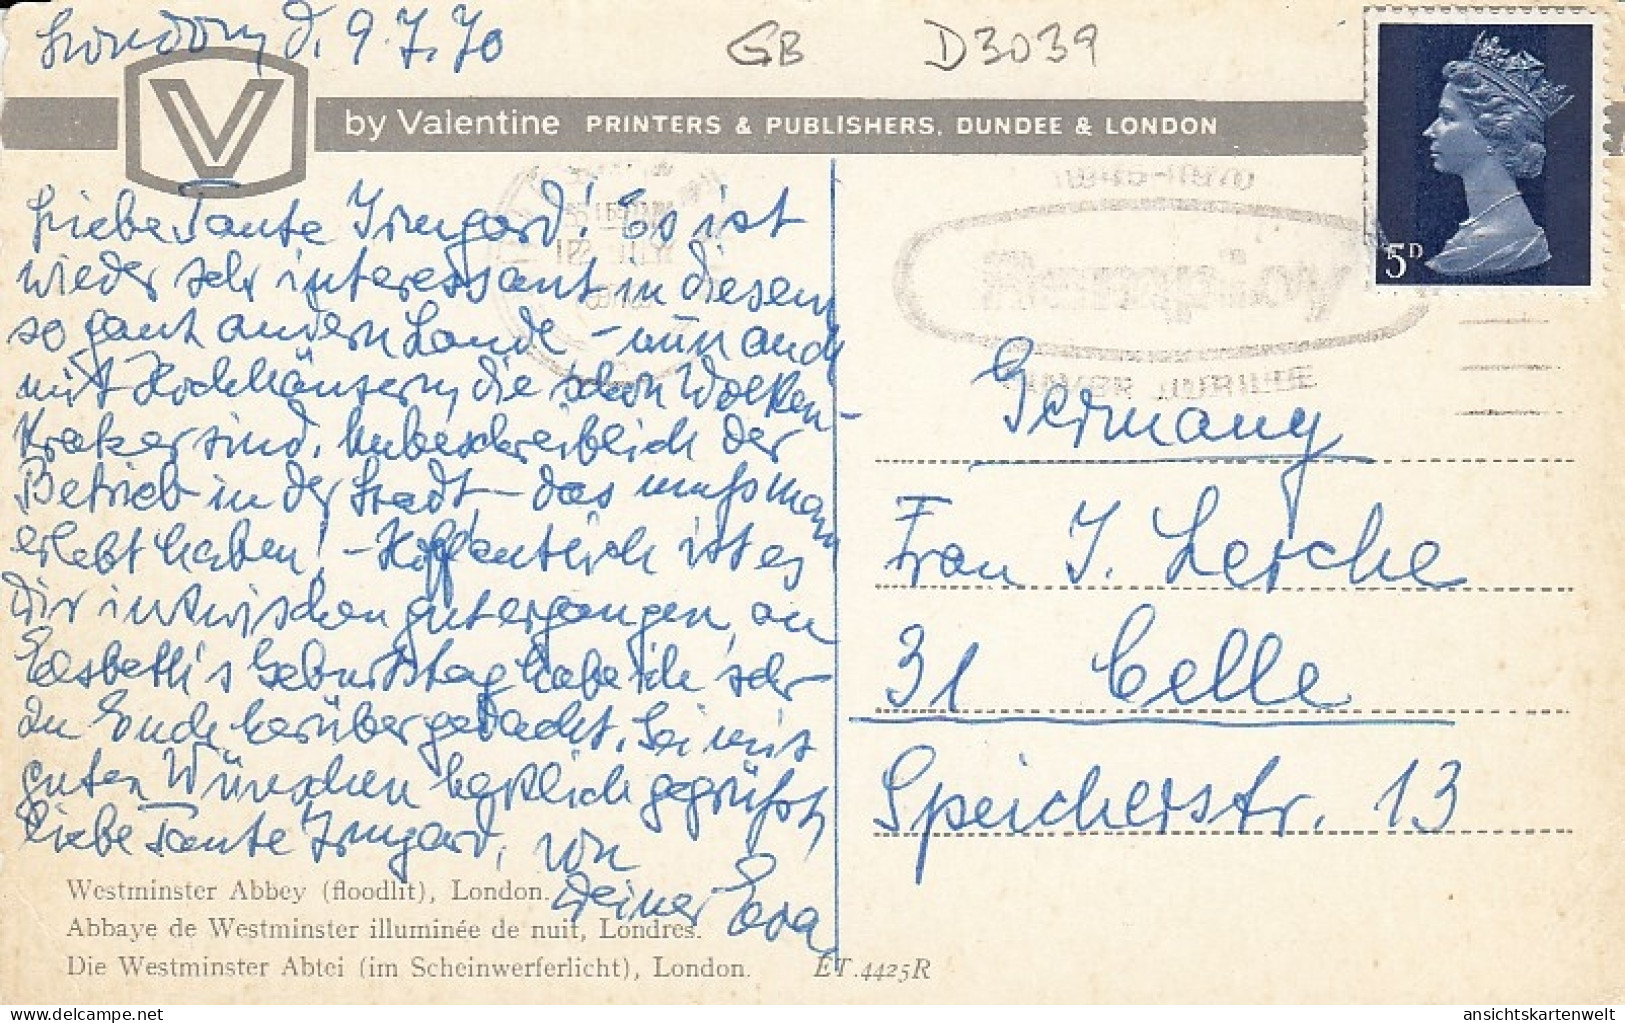 London, d. 9.7.70
GB D3039
V by Valentine PRINTERS & PUBLISHERS, DUNDEE & LONDON
Liebe Tante Irmgard! Es ist
wieder sehr interessant in diesem
so ganz andern Lande – nun auch
mit Hochhäusern, die schon Wolken-
kratzer sind. Unbeschreiblich der
Betrieb in der Stadt – das muß man
erlebt haben! – Hoffentlich ist es
Dir inzwischen gut ergangen, an
Elsbeth's Geburtstag habe ich sehr
zu Euch herüber gedacht. Sei mit
guten Wünschen herzlich gegrüßt,
liebe Tante Irmgard, von
Deiner Eva
Westminster Abbey (floodlit), London.
Abbaye de Westminster illuminée de nuit, Londres.
Die Westminster Abtei (im Scheinwerferlicht), London. ET.4425R
5D
Germany
Frau I. Lerche
31 Celle
Speicherstr. 13
ansichtskartenwelt